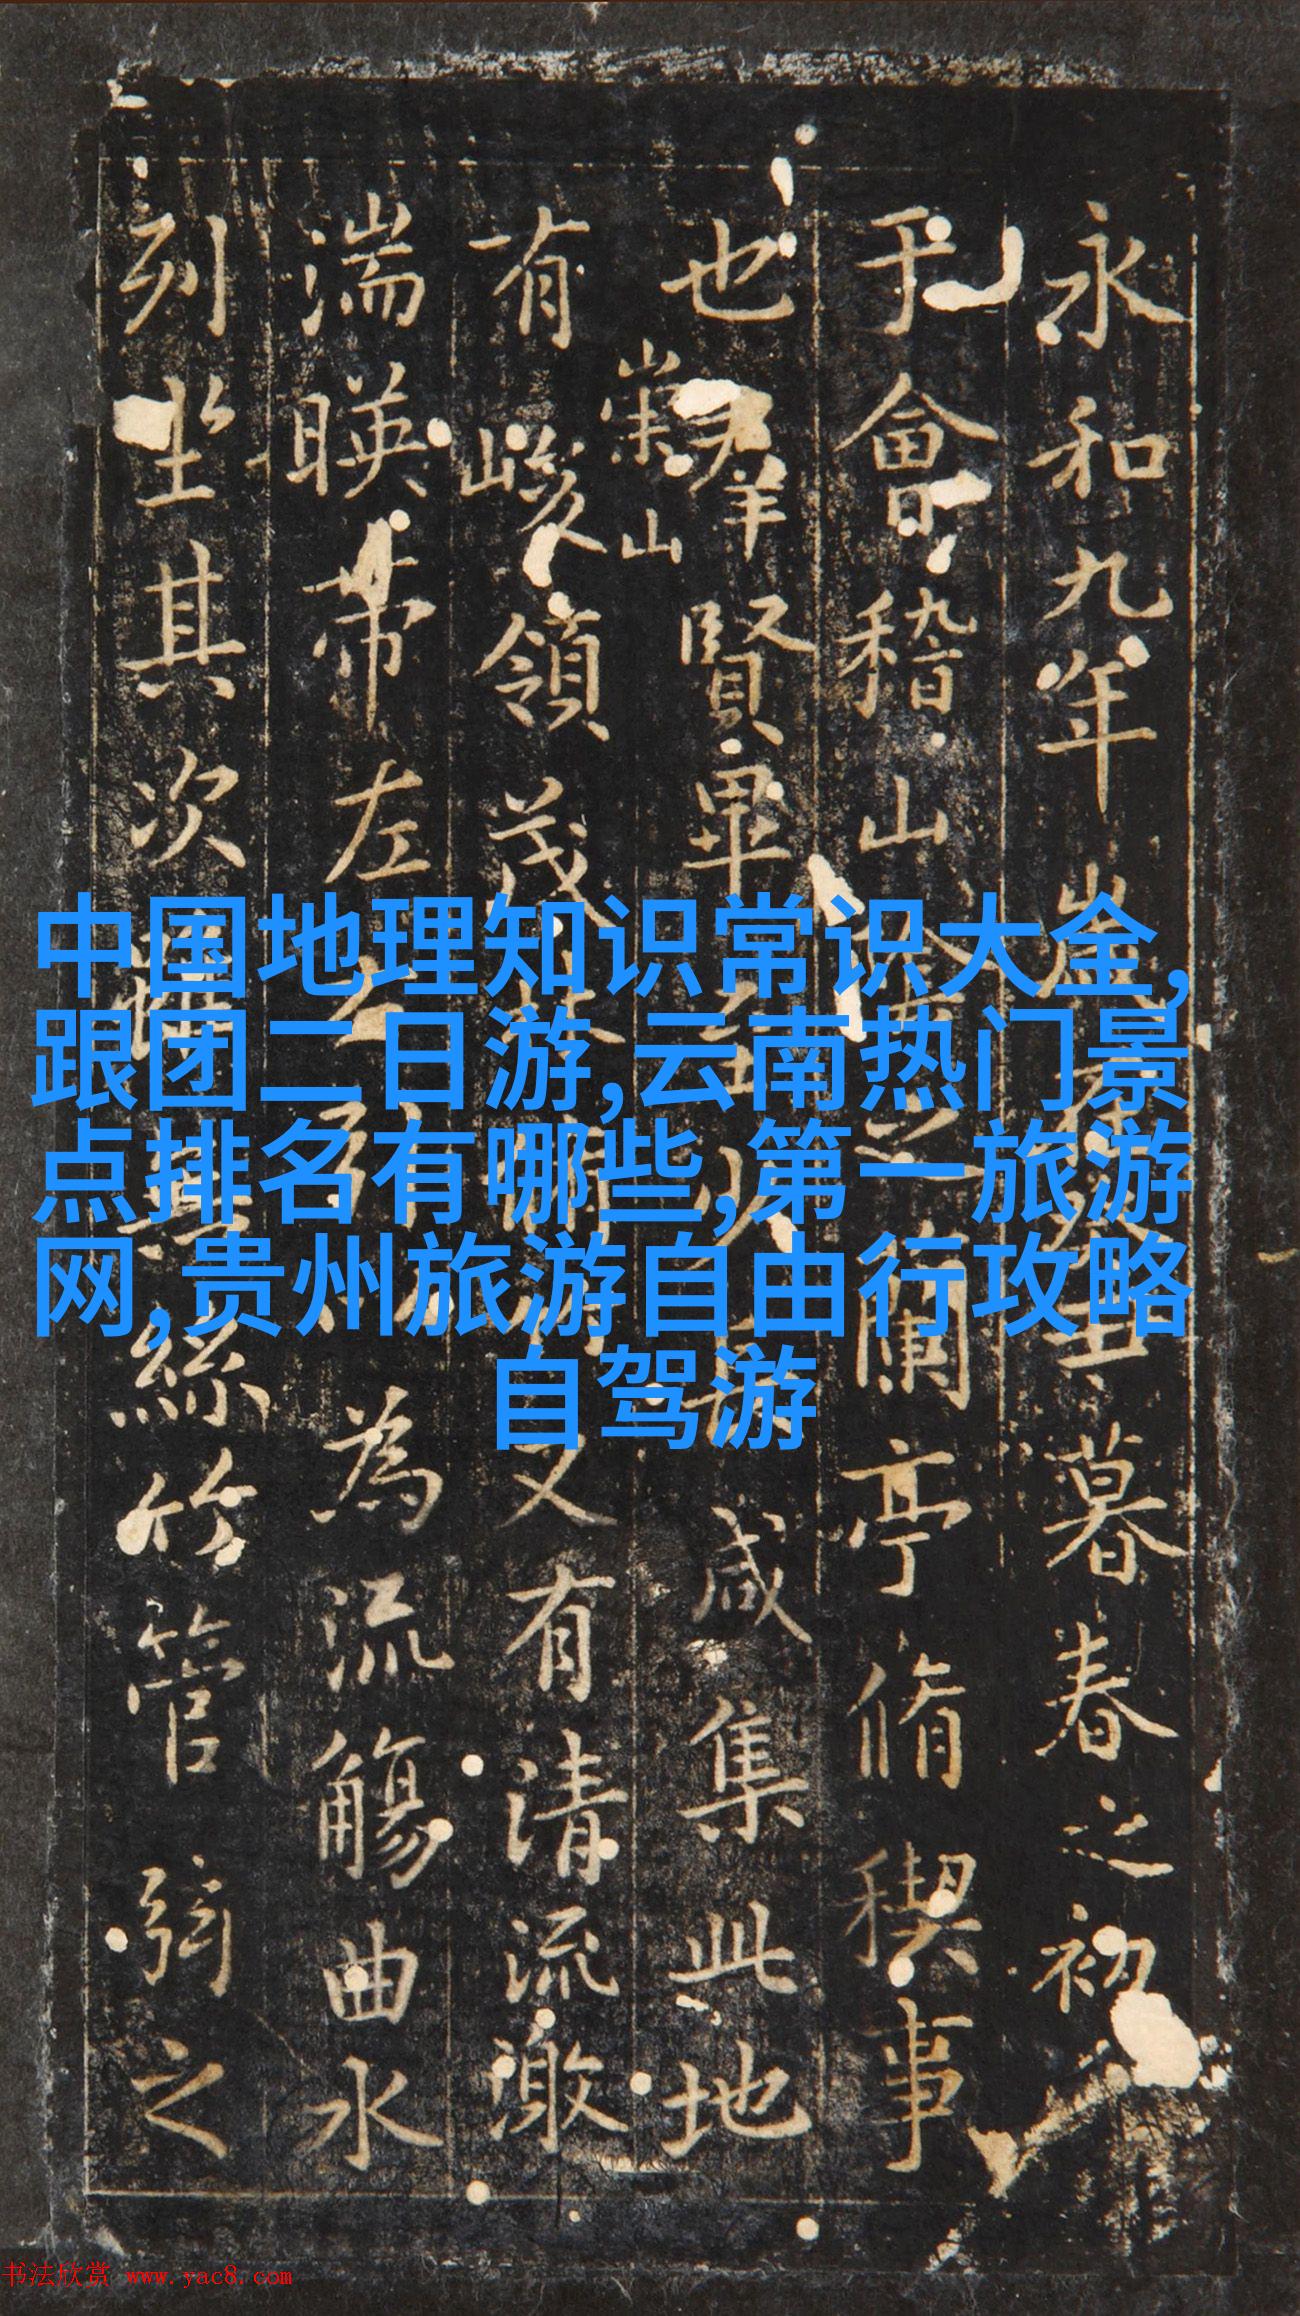 永和九年歲在癸丑暮春之初
于會稽山陰之蘭亭脩稧事
也羣賢畢至少長咸集此地
崇山
有峻領茂林脩竹又有清流激
湍暎帶左右引以為流觴曲水
列坐其次雖無絲竹管弦之
中国地理知识常识大全,
跟团二日游,云南热门景
点排名有哪些,第一旅游
网,贵州旅游自由行攻略
自驾游
书法欣赏 www.yac8.com